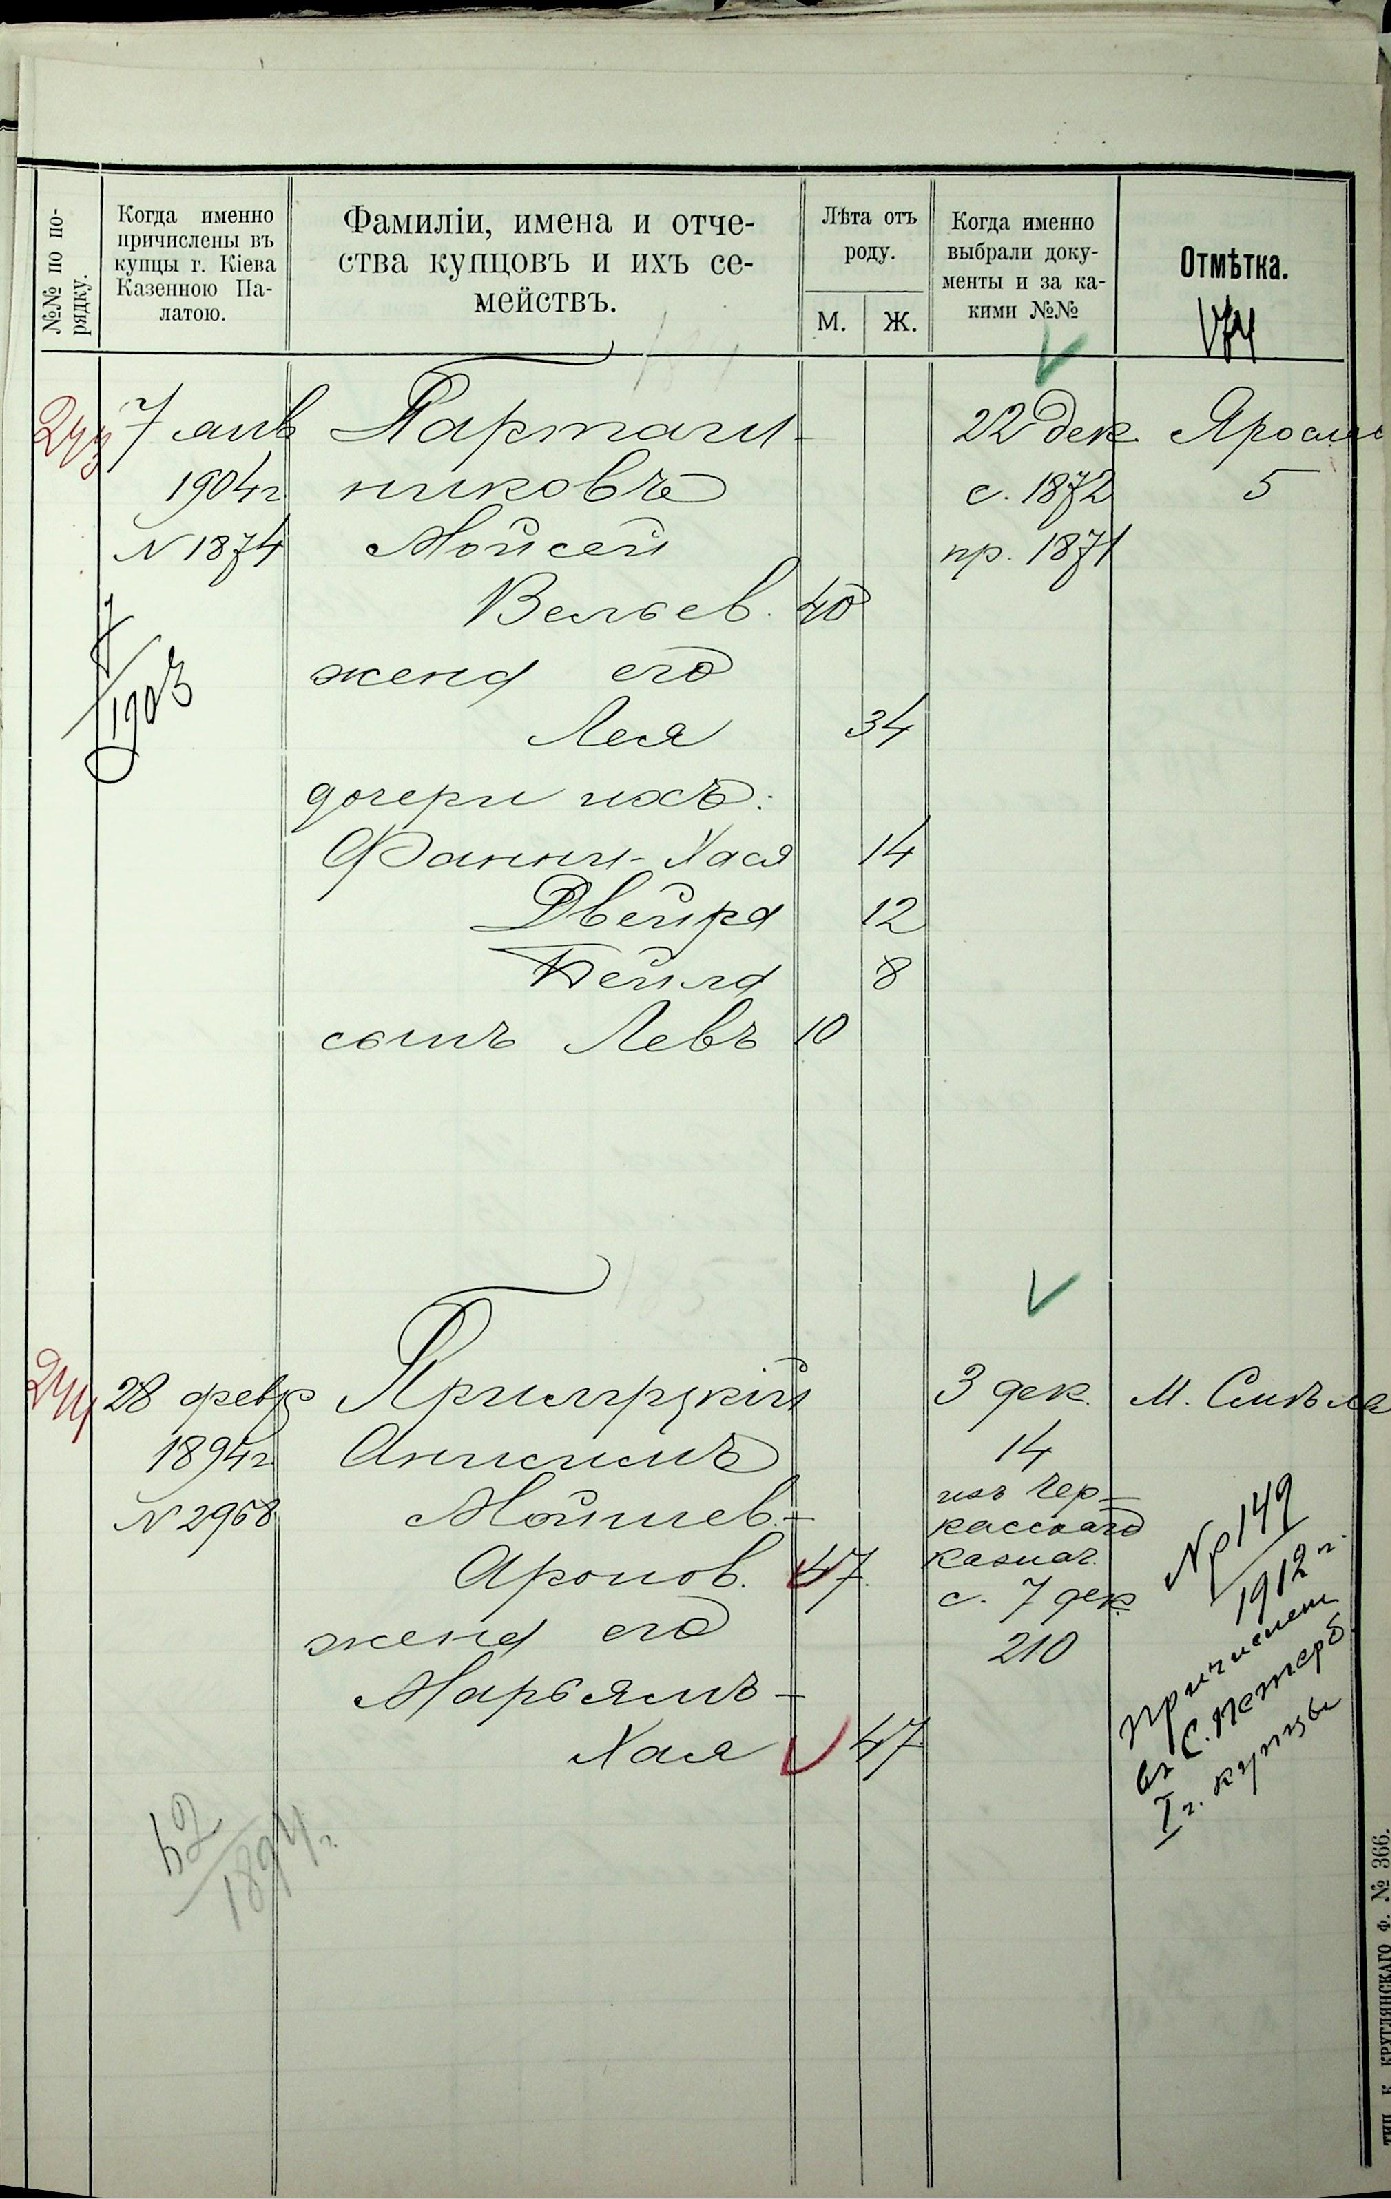 №№ по по-
рядку.
Когда именно
причислены въ
купцы г. Кіева
Казенною Па-
латою.
Фамиліи, имена и отче-
ства купцовъ и ихъ се-
мействъ.
Лѣта отъ
роду.
М.
Ж.
Когда именно
выбрали доку-
менты и за ка-
кими №№
Отмѣтка.
243 7 янв Парташ- 22 дек Яросл
1904 г никовъ с. 1872 5
N 1874 Мойсей пр. 1871
Вельев. 40
жена его
Лея 34
дочери ихъ:
Фанни-Хася 14
Двейра 12
Бейла 8
сынъ Левъ 10
7
1903
244 28 февр Прилуцкій 3 дек. М. Смѣла
1894 г Анисимъ 14
N 2968 Мойшев.- изъ Чер-
касскаго
Аронов. 47 казнач.
с. 7 дек.
жена его 210
Марьямъ-
Хая 47
№ 149
1912 г.
причислен
въ С. Петерб
I г. купцы
1894 г.
ТИП. К. КРУГЛЯНСКАГО Ф. № 366.